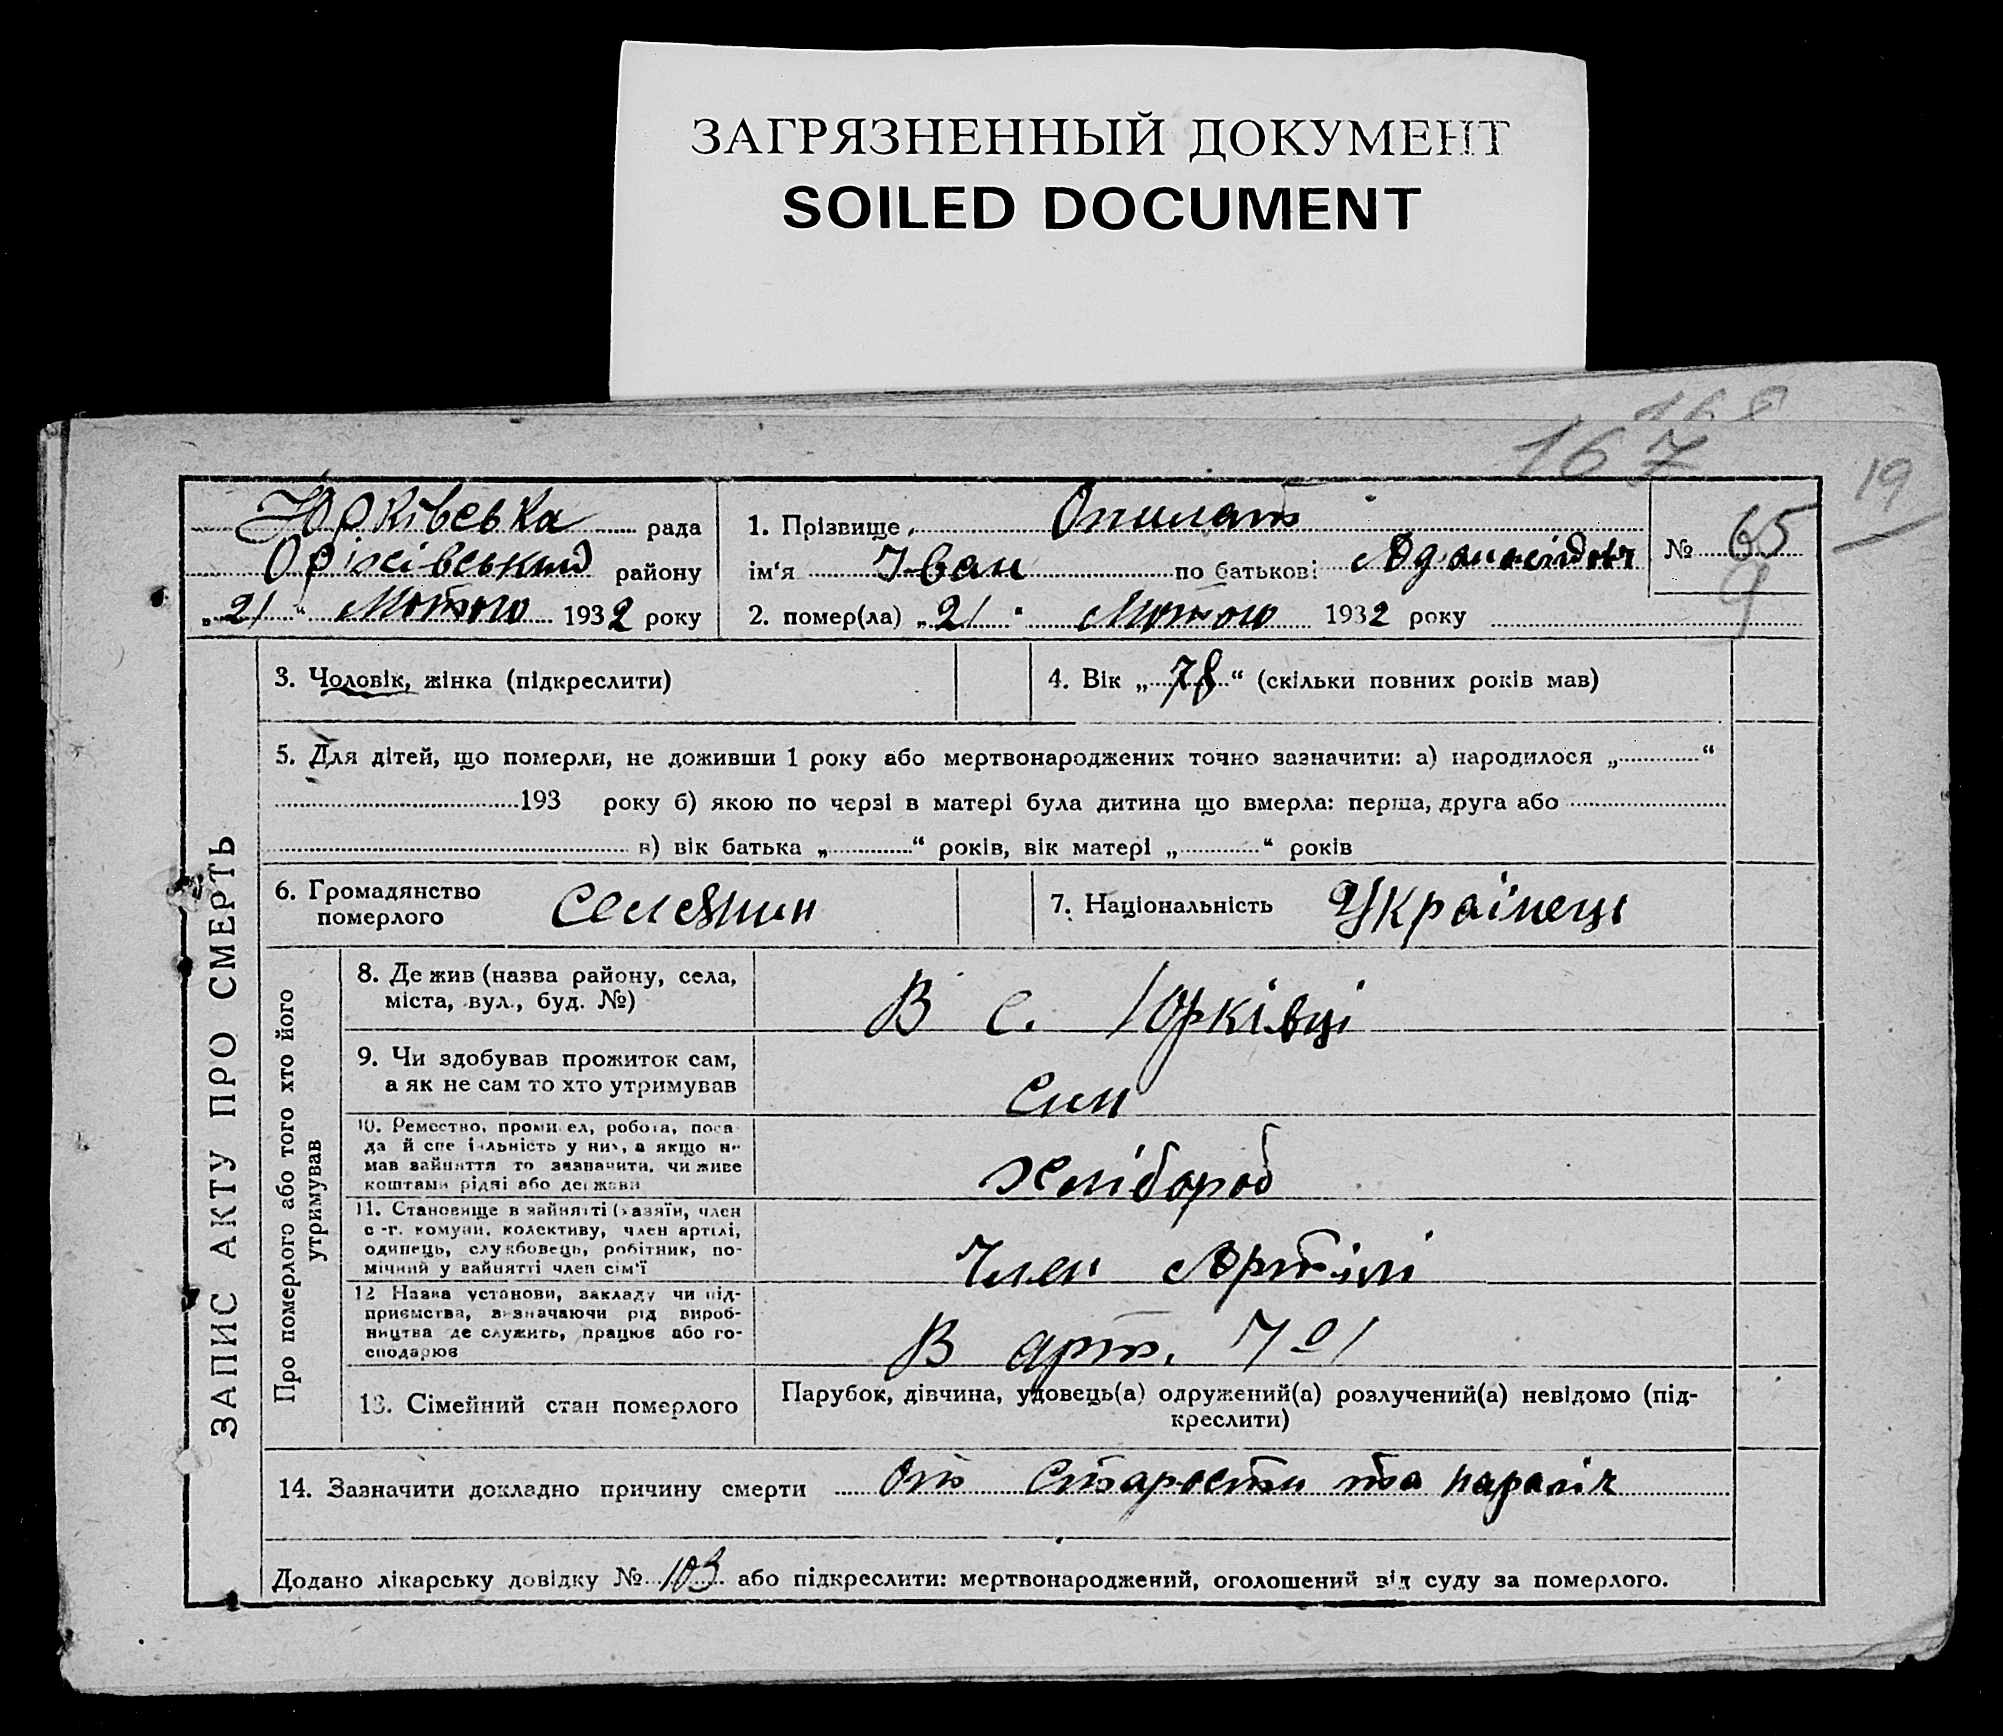 ЗАГРЯЗНЕННЫЙ ДОКУМЕНТ
SOILED DOCUMENT
168
167
19
Юрківська рада
Оріхівський району
„21“ Лютого 1932 року
1. Прізвище Опилат
ім‘я Іван по батькові
№ 65
9
2. помер(ла) „21“ Лютого 1932 року
ЗАПИС АКТУ ПРО СМЕРТЬ
3. Чоловік, жінка (підкреслити)
4. Вік „78“ (скільки повних років мав)
5. Для дітей, що померли, не доживши 1 року або мертвонароджених точно зазначити: а) народилося „ “
193 року б) якою по черзі в матері була дитина що вмерла: перша, друга або
в) вік батька „ “ років, вік матері „ “ років
6. Громадянство
померлого
Селянин
7. Національність Українець
Про померлого або того хто його
утримував
8. Де жив (назва району, села,
міста, вул., буд. №)
В с. Юрківці
9. Чи здобував прожиток сам,
а як не сам то хто утримував
Син
10. Ремество, промисел, робота, поса-
да й спеціяльність у них, а якщо не
мав зайняття то зазначити, чи живе
коштами рідні або держави
Хлібороб
11. Становище в зайнятті (хазяїн, член
с.-г. комуни, колективу, член артілі,
одинець, службовець, робітник, по-
мічний у зайнятті член сім‘ї
Член Артілі
12. Назва установи, закладу чи під-
приємства, визначаючи рід вироб-
ництва де служить, працює або го-
сподарює
В арт.
13. Сімейний стан померлого
Парубок, дівчина, удовець(а) одружений(а) розлучений(а) невідомо (під-
креслити)
14. Зазначити докладно причину смерти От старости та параліч
Додано лікарську довідку № 103 або підкреслити: мертвонароджений, оголошений від суду за померлого.